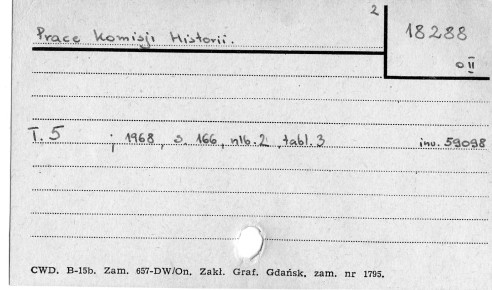 2
Prace Komisji Historii.
18288
O II
T. 5 ; 1968, s. 166, nlb. 2, tabl. 3 inw. 59098
CWD. B-15b. Zam. 657-DW/On. Zakł. Graf. Gdańsk, zam. nr 1795.